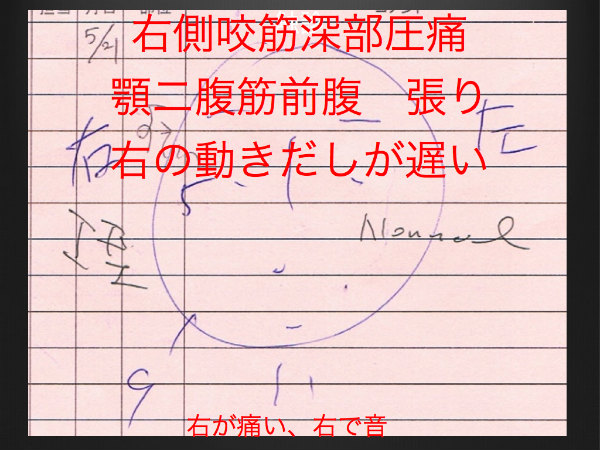 5/21
右側咬筋深部圧痛
顎二腹筋前腹　張り
右の動きだしが遅い
右
左
5
Normal
9
11
右が痛い、右で音